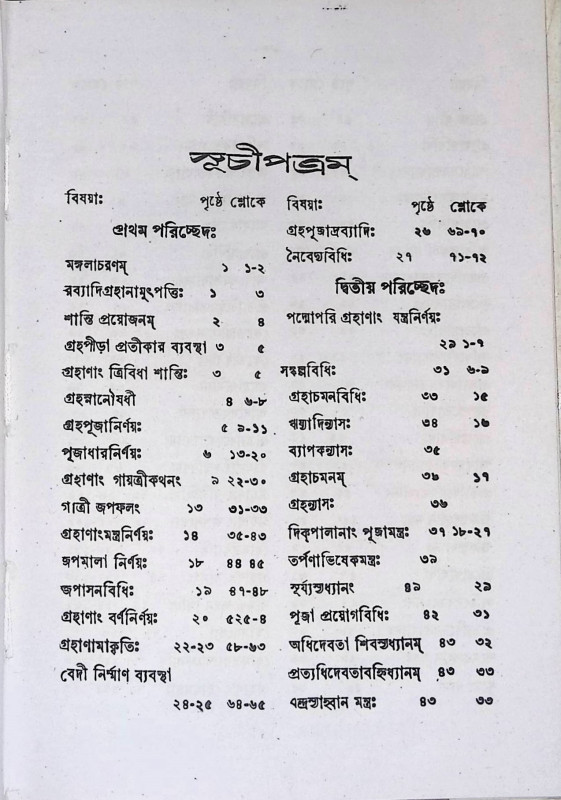 সূচীপত্রম্
বিষয়াঃ পৃষ্ঠে শ্লোকে
প্রথম পরিচ্ছেদঃ
মঙ্গলাচরণম্ ১ ১-২
রব্যাদিগ্রহানামুৎপত্তিঃ ১ ৩
শান্তি প্রয়োজনম্ ২ ৪
গ্রহপীড়া প্রতীকার ব্যবস্থা ৩ ৫
গ্রহাণাং ত্রিবিধা শান্তিঃ ৩ ৫
গ্রহস্নানৌষধী ৪ ৬-৮
গ্রহপূজানির্ণয়ঃ ৫ ৯-১১
পূজাধারনির্ণয়ঃ ৬ ১৩-২০
গ্রহাণাং গায়ত্রীকথনং ৯ ২২-৩০
গাত্রী জপফলং ১৩ ৩১-৩৩
গ্রহাণাংমন্ত্রনির্ণয়ঃ ১৪ ৩৫-৪৩
জপমালা নির্ণয়ঃ ১৮ ৪৪ ৪৫
জপাসনবিধিঃ ১৯ ৪৭-৪৮
গ্রহাণাং বর্ণনির্ণয়ঃ ২০ ৫২৫-৪
গ্রহাণামাকৃতিঃ ২২-২৩ ৫৮-৬৩
বেদী নির্ম্মাণ ব্যবস্থা
২৪-২৫ ৬৪-৬৫
বিষয়াঃ পৃষ্ঠে শ্লোকে
গ্রহপূজাদ্রব্যাদিঃ ২৬ ৬৯-৭০
নৈবেদ্যবিধিঃ ২৭ ৭১-৭২
দ্বিতীয় পরিচ্ছেদঃ
পদ্মোপরি গ্রহাণাং যন্ত্রনির্ণয়ঃ
২৯ ১-৭
সঙ্কল্পবিধিঃ ৩১ ৬-৯
গ্রহাচমনবিধিঃ ৩৩ ১৫
ঋষ্যাদিন্যাসঃ ৩৪ ১৬
ব্যাপকন্যাসঃ ৩৫
গ্রহাচমনম্ ৩৬ ১৭
গ্রহন্যাসঃ ৩৬
দিকপালানাং পূজামন্ত্রঃ ৩৭ ১৮-২৭
তর্পণাভিষেকমন্ত্রঃ ৩৯
সূর্য্যস্যধ্যানং ৪৯ ২৯
পূজা প্রয়োগবিধিঃ ৪২ ৩১
অধিদেবতা শিবস্যধ্যানম্ ৪৩ ৩২
প্রত্যধিদেবতাবহ্নিধ্যানম্ ৪৩ ৩৩
এন্দ্রস্যাহ্বান মন্ত্রঃ ৪৩ ৩৩